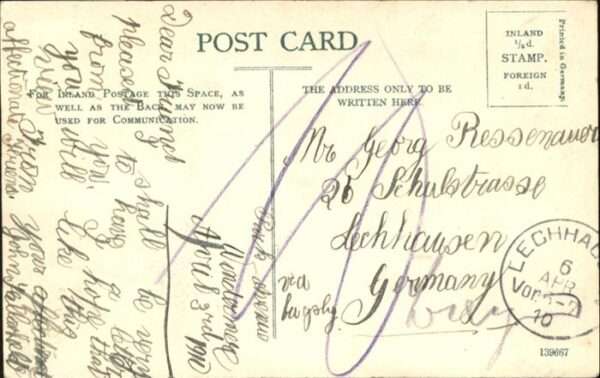 POST CARD
FOR INLAND POSTAGE THIS SPACE, AS
WELL AS THE BACK, MAY NOW BE
USED FOR COMMUNICATION.
THE ADDRESS ONLY TO BE
WRITTEN HERE.
INLAND
½d.
STAMP.
FOREIGN
1d.
Printed in Germany.
Mr Georg Ressenauer
26 Schulstrasse
Lechhausen
Germany
LECHHAU
6
APR
Vor
10
139667
avenue
Windermere
April 3rd 1910
Dear Friend
I shall be very
pleased to have a
from you. I hope that
you will like this
view from your
affectionate friend